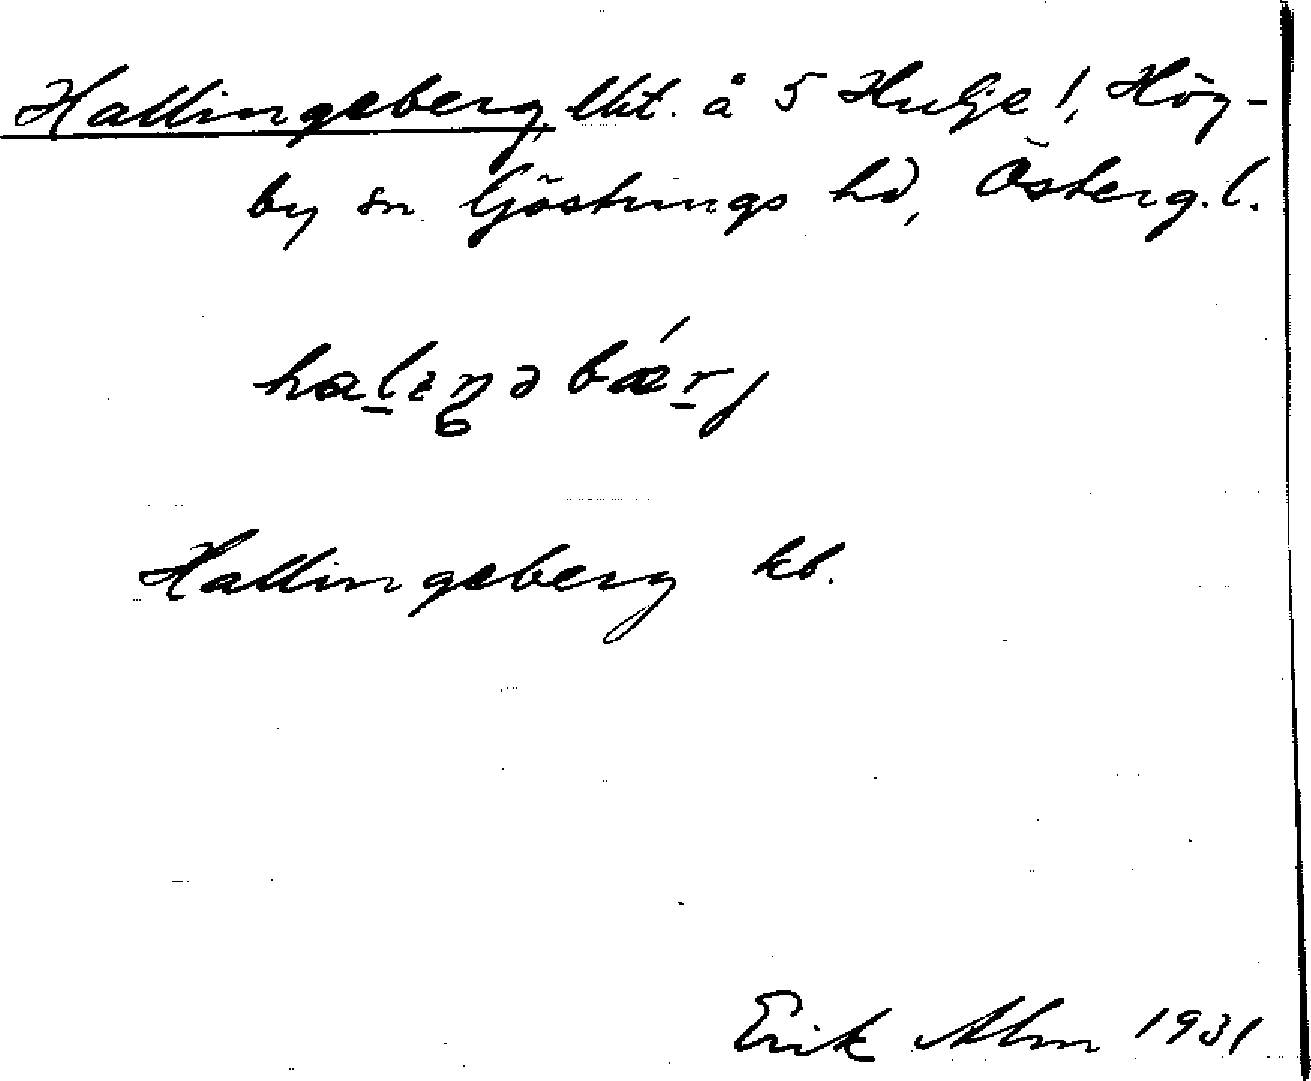 Hallingeberg, lht. å 5 Hulje !, Hög-
by sn Göstrings hd, Österg. l.
Hallingeberg kb.
Erik Alm 1931